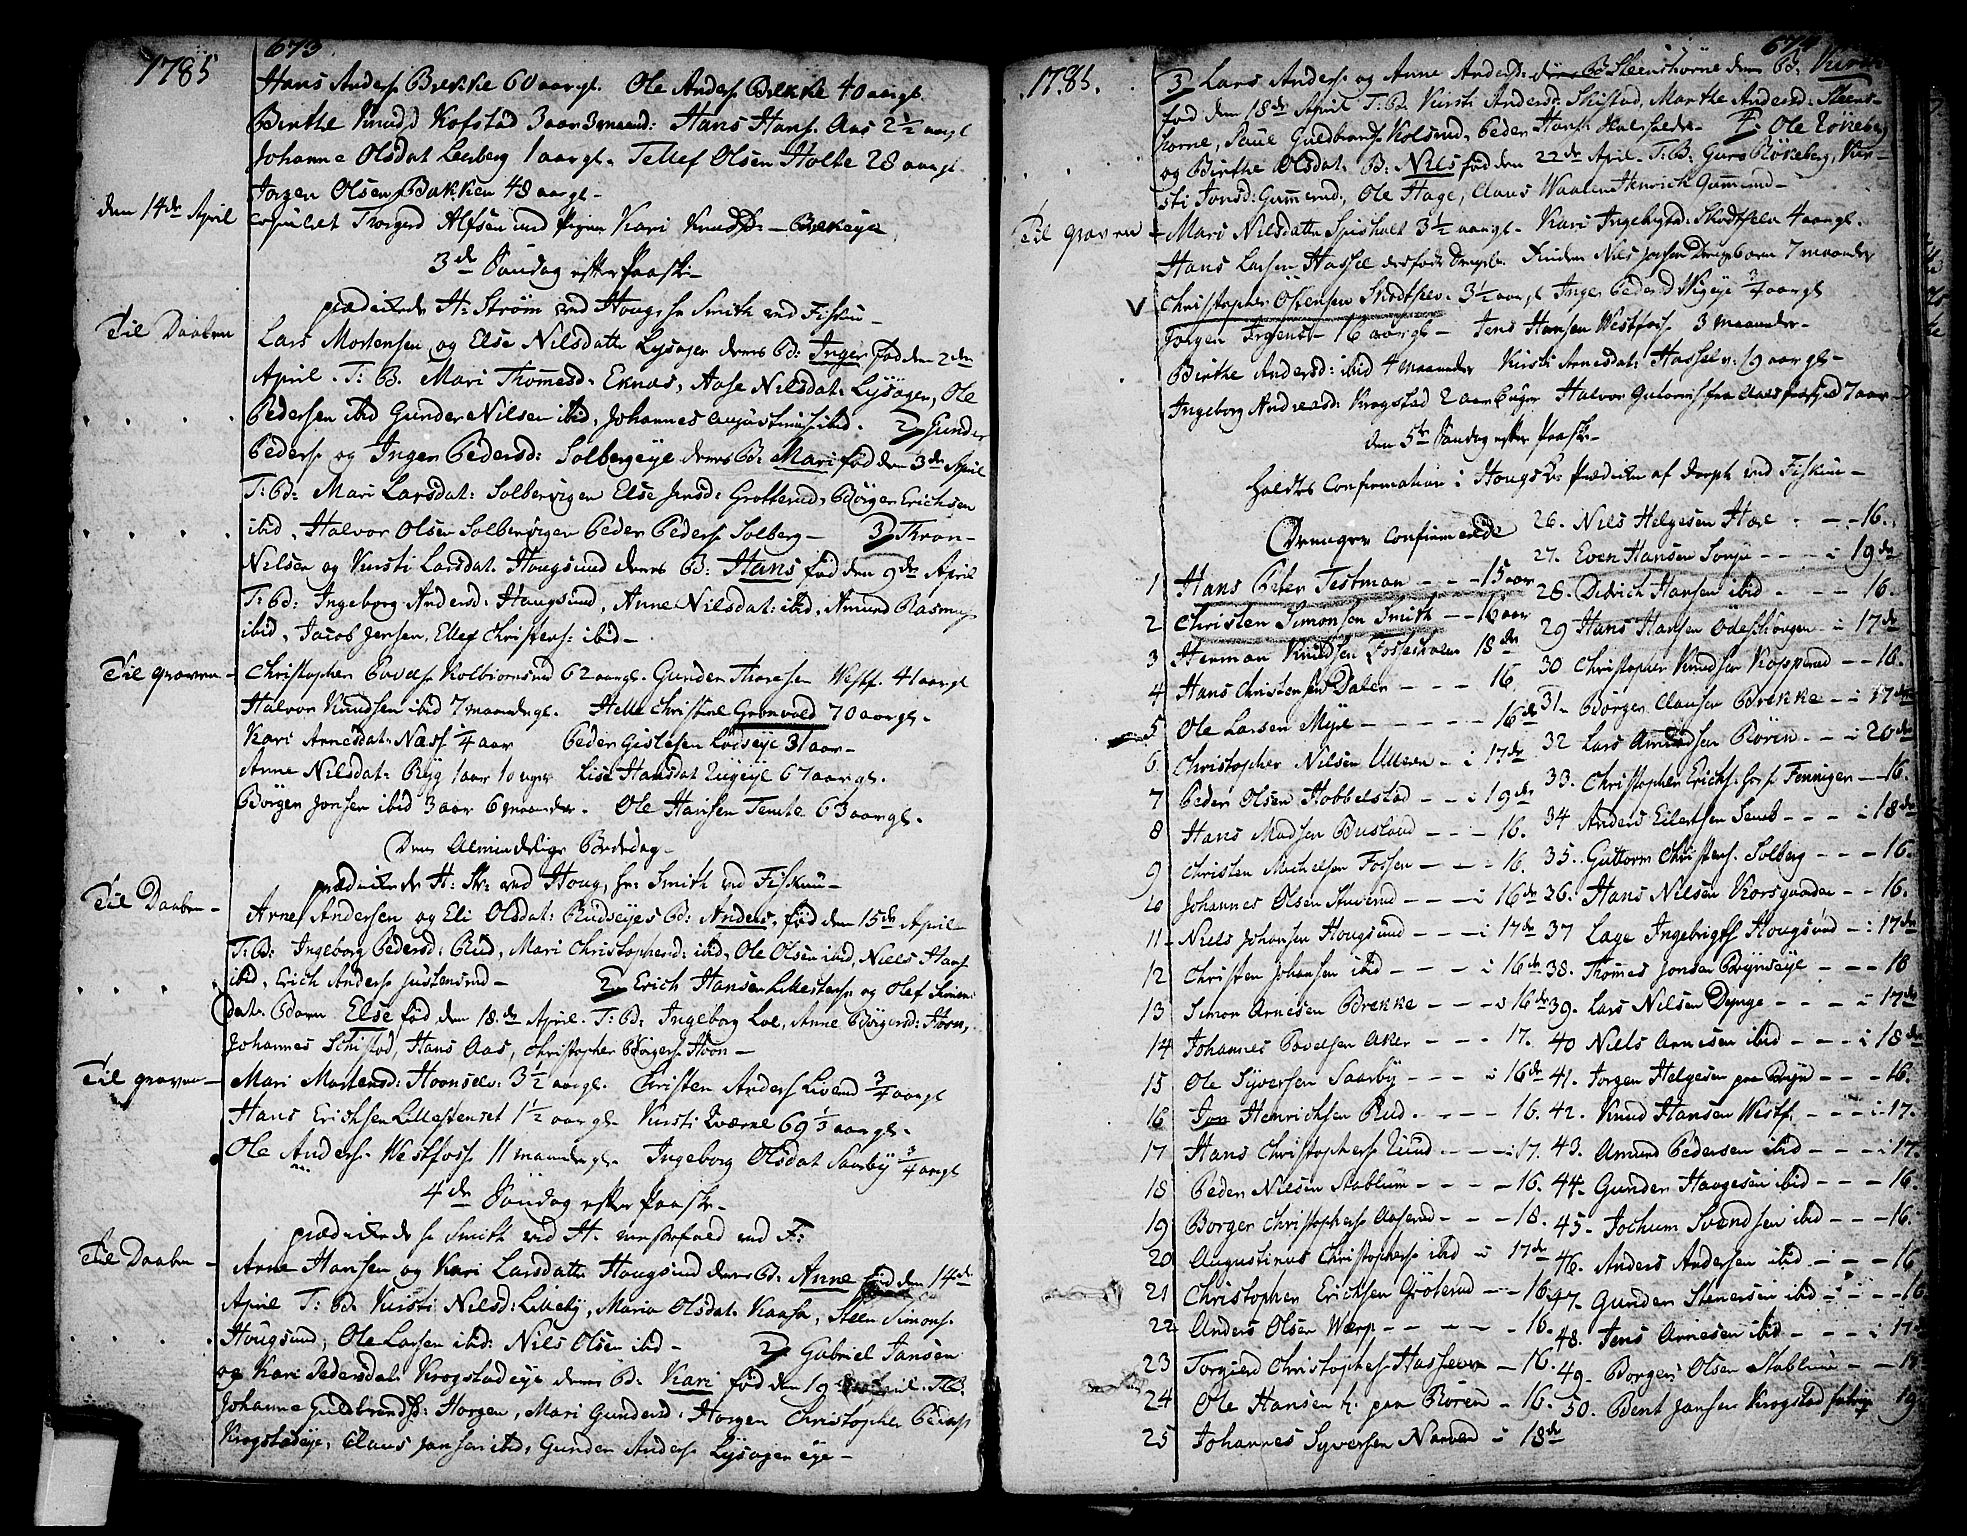 1785
673
Hans Anders Bekke 60 aar gl. Ole Anders Bekke 40 aar gl.
Birthe Knudsd Kofstad 3 aar 3 maand: Hans Hans. Aas 2½ aar gl
Johanne Olsdat Leeberg 1 aar gl. Tellef Olsen Holte 28 aar gl.
Jørgen Olsen Bakken 48 aar gl.
den 14de April
copulert Alfsen med Pigen Kari Knudsd: Bekeije
3de Søndag efter Paaske
prædikede H: Strøm ved Houg, hr Smith ved Fiskum
Til Daaben
Lars Mortensen og Else Nilsdatter Lysager deres B: Inger fød den 2den
April. T: B. Mari Thomesd: Eknas, Aase Nilsdat: Lysager, Ole
Pedersen ibid Gunder Nilsen ibid, Johannes Augustinus: ibid. 2) Gunder
Peders og Inger Pedersd: Solbergeije deres B: Mari fød den 3de April
T: B: Mari Larsdat: Solberg Else Jensd: Grotterud, Børger Erichsen
ibid, Halvor Olsen Peder Peders Solberg 3) Thron
Nilsen og Kirsti Larsdat: Hougsund deres B: Hans fød den 9de April
T: B: Ingeborg Andersd: Hougsund, Anne Nilsdat: ibid, Amund Rasmus
ibid, Jacob Jensen, Ellef Christens: ibid
Til graven
Christopher Povels Kolbrunsrud 62 aar gl. Gunder Thoresen Westf. 41 aar gl
Halvor Knudsen ibid 7 maander gl. Helle Christine Grønvold 70 aar gl.
Kari Arnesdat: Næss ¼ aar Peder Gislesen 31 aar
Anne Nilsdat: Ryg 1 aar 10 uger Lise Hansdat 67 aar gl.
Børgen Jonsen ibid 3 aar 6 maander. Ole Hansen Temte 63 aar gl.
Den Almindelige Bededag
prædikede H: Str: ved Houg, hr: Smith ved Fiskum
Til Daaben
Arne Andersen og Eli Olsdat: Rudseijes B: Anders, fød den 15de April
T: B: Ingeborg Pedersd: Rud, Mari Christophersd: ibid, Ole Olsen ibid, Niels Hans
ibid, Erich Anders 2) Erich Hansen og
dat. Barn Else fød den 18de April. T: B: Ingeborg Loe, Anne Børgersd: Hoen,
Johannes Schistad, Hans Aas, Christopher Børgers Hoen
Til graven
Mari Mortensd: Hoenselv: 3½ aar gl. Christen Anders Lierud ¾ aar gl
Hans Erichsen 1½ aar gl. Kirsti 69⅓ aar gl.
Ole Anders Westfoss 11 maander gl. Ingeborg Olsdat Saasby ¾ aar gl
4de Søndag efter Paaske
prædikede hr Smith ved H. messefald ved F:
Til Daaben
Arne Hansen og Kari Larsdatter Hougsund deres B: Anne fød den 14de
April T: B. Kirsti Nilsd: Lilleby, Maria Olsdat: Kaasa, Steen Simons.
Hougsund, Ole Larsen ibid: Nils Olsen ibid 2) Gabriel Jansen
og Kari Pedersdat: Krogstadeije deres B: Kari fød den 19 April. T:B:
Johanne Guldbrandsd: Horgen, Mari Gundersd: Horgen Christopher Peders
Krogstadeije, Claus Jansen ibid, Gunder Anders Lysager eije
1785.
674
3) Lars Anders og Anne Andersd: deres B:
fød den 18de April T: B. Kirsti Andersd: Skistad, Marthe Andersd: Steens-
korne, Paul Guldbrands Kolsrud, Peder Hans 4) Ole Røkeberg
og Birthe Olsdat: B: Nils fød den 22de April. T: B: Guro Røkeberg, Kir-
sti Jonsd: Gumerud, Ole Hage, Claus Waalen Henrich Gumerud
Til graven
Mari Nilsdatter 3½ aar gl. Kari 4 aar gl.
Hans Larsen Hassel Nils Drengebarn 7 maander
Christopher Ostensen Skodtselv. 3½ aar gl Inger Pedersd ¾ aar gl
Jørgen 16 aar gl Jens Hansen Westfoss 3 maander
Birthe Andersd: ibid 4 maander Kirsti Arnesdat: Hassel 19 aar gl
Ingeborg Andreasd: Krogstad 2 aar Halvor 7 aar
den 5te Søndag efter Paaske
holdtes Confirmation i Hougs K: Prædiken af Dorph ved Fiskum
Drenger Confirmerede
1 Hans Peter Testman 15 aar
2 Christen Simonsen Smith 16 aar
3 Herman Knudsen Fossesholm 18de
4 Hans Christensen Dalen 16
5 Ole Larsen Myre 16de
6 Christopher Nilsen Ulleren i 17de
7 Peder Olsen Hobbelstad i 19de
8 Hans Madsen Busland 16.
9 Christen Michelsen Fossen 16.
10 Johannes Olsen i 16de
11 Niels Johansen Hougsund i 17de
12 Christen Johansen ibid i 16de
13 Simon Arnesen Brekke 16de
14 Johannes Povelsen Aker 17.
15 Ole Syversen Saasby i 16de
16 Jon Henrichsen Rud. 16.
17 Hans Christophers Lund i 17.
18 Peder Nilsen Stablum 16.
19 Borger Christophers Aaserud 18.
20 Augustinus Christophers ibid i 17de
21 Christopher Erichsen Grøterud 16
22 Anders Olsen Wærp 16.
23 Torgier Christophers Hasselv 16.
24 Ole Hansen h. paa Røren 16.
25 Johannes Syversen Narverud i 18de
26. Nils Helgesen Hære 16.
27. Even Hansen Sorge i 19de
28. Didrich Hansen ibid 16.
29 Hans Hansen Ødeskougen i 17de
30 Christopher Knudsen Kopperud 16.
31 Børger Clausen Brekke i 17de
32 Lars Amundsen Røren i 20de
33. Christopher Erichs: 16.
34 Anders Eilertsen i 18de
35. Guttorm Christens. Solberg 16.
36. Hans Nilsen Korsgaarden 16.
37 Lage Ingebrigts Hougsund i 17de
38. Thomes Jonsen Brynseije 18
39. Lars Nilsen Dynge i 17de
40 Niels Arnesen ibid i 18de
41. Jorgen Helgesen paa Bryn 16.
42. Knud Hansen Westf. i 17.
43. Amund Pedersen ibid i 17.
44. Gunder Haagesen ibid 16.
45. Jochum Svendsen ibid 16.
46. Anders Andersen ibid 16
47. Gunder Stenersen ibid 16
48. Jens Arnesen ibid i 17de
49. Borger Olsen Stablum
50. Bent Jansen Krogstad 19